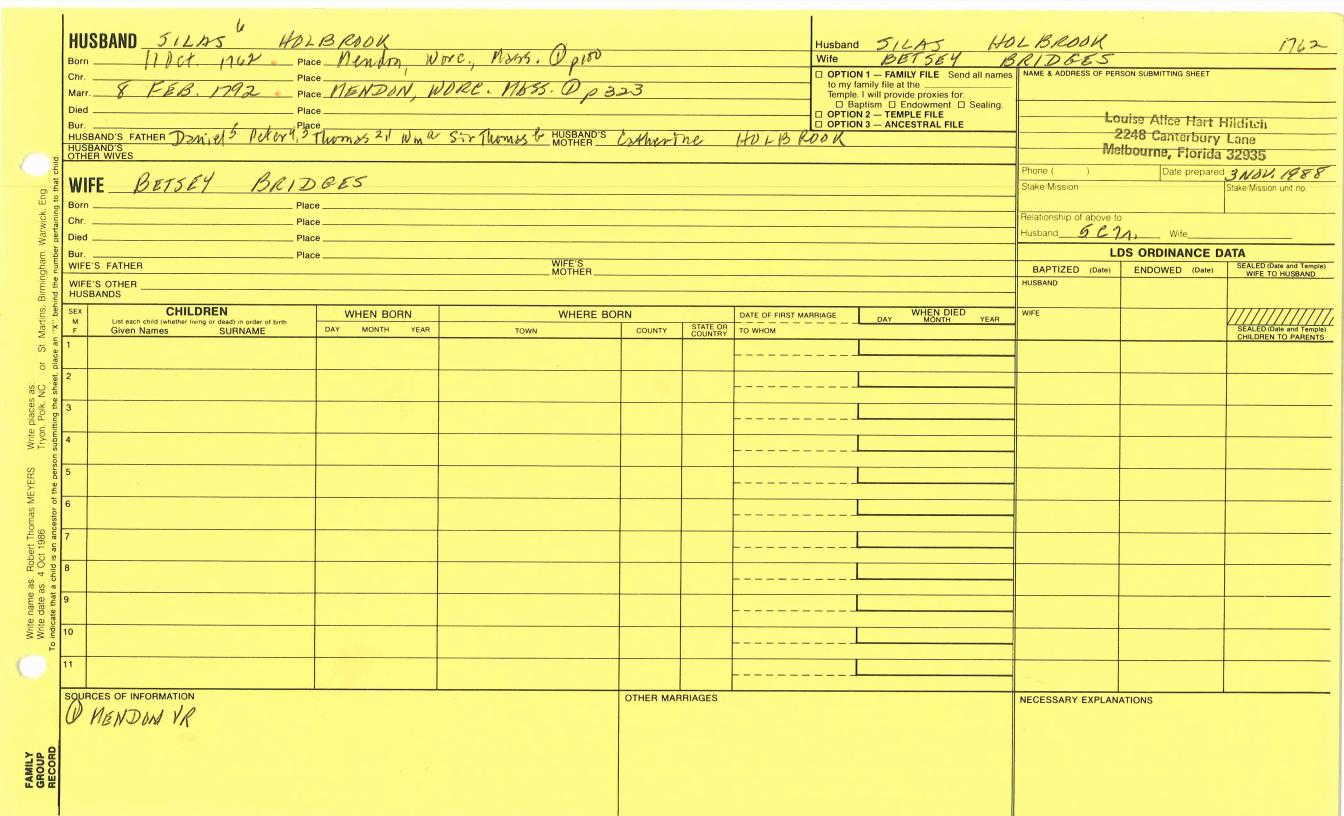 HUSBAND SILAS 6 HOLBROOK
Born 11 Oct. 1762 Place Mendon, Worc., Mass. ① p100
Chr. Place
Marr. 8 FEB. 1792 Place MENDON, WORC. MASS. ① p 323
Died Place
Bur. Place
HUSBAND'S FATHER Daniel 5 Peter 4,3 Thomas 2,1 Wm a Sir Thomas b HUSBAND'S MOTHER Catherine HOLBROOK
HUSBAND'S OTHER WIVES
Husband SILAS HOLBROOK 1762
Wife BETSEY BRIDGES
☐ OPTION 1 — FAMILY FILE Send all names
to my family file at the
Temple. I will provide proxies for
☐ Baptism ☐ Endowment ☐ Sealing.
☐ OPTION 2 — TEMPLE FILE
☐ OPTION 3 — ANCESTRAL FILE
NAME & ADDRESS OF PERSON SUBMITTING SHEET
Louise Alice Hart Hilditch
2248 Canterbury Lane
Melbourne, Florida 32935
Phone ( ) Date prepared 3 NOV. 1988
Stake Mission Stake Mission unit no.
Relationship of above to
Husband 5C7r. Wife
WIFE BETSEY BRIDGES
Born Place
Chr. Place
Died Place
Bur. Place
WIFE'S FATHER WIFE'S MOTHER
WIFE'S OTHER HUSBANDS
LDS ORDINANCE DATA
BAPTIZED (Date) ENDOWED (Date) SEALED (Date and Temple) WIFE TO HUSBAND
HUSBAND
WIFE
SEALED (Date and Temple) CHILDREN TO PARENTS
SEX M F
CHILDREN
List each child (whether living or dead) in order of birth
Given Names SURNAME
WHEN BORN
DAY MONTH YEAR
WHERE BORN
TOWN COUNTY STATE OR COUNTRY
DATE OF FIRST MARRIAGE
TO WHOM
WHEN DIED
DAY MONTH YEAR
1
2
3
4
5
6
7
8
9
10
11
SOURCES OF INFORMATION
① MENDON VR
OTHER MARRIAGES
NECESSARY EXPLANATIONS
Write name as: Robert Thomas MEYERS Write places as: Tryon, Polk, NC or St Martins, Birmingham, Warwick, Eng
Write date as: 4 Oct 1986
To indicate that a child is an ancestor of the person submitting the sheet, place an "X" behind the number pertaining to that child
FAMILY
GROUP
RECORD